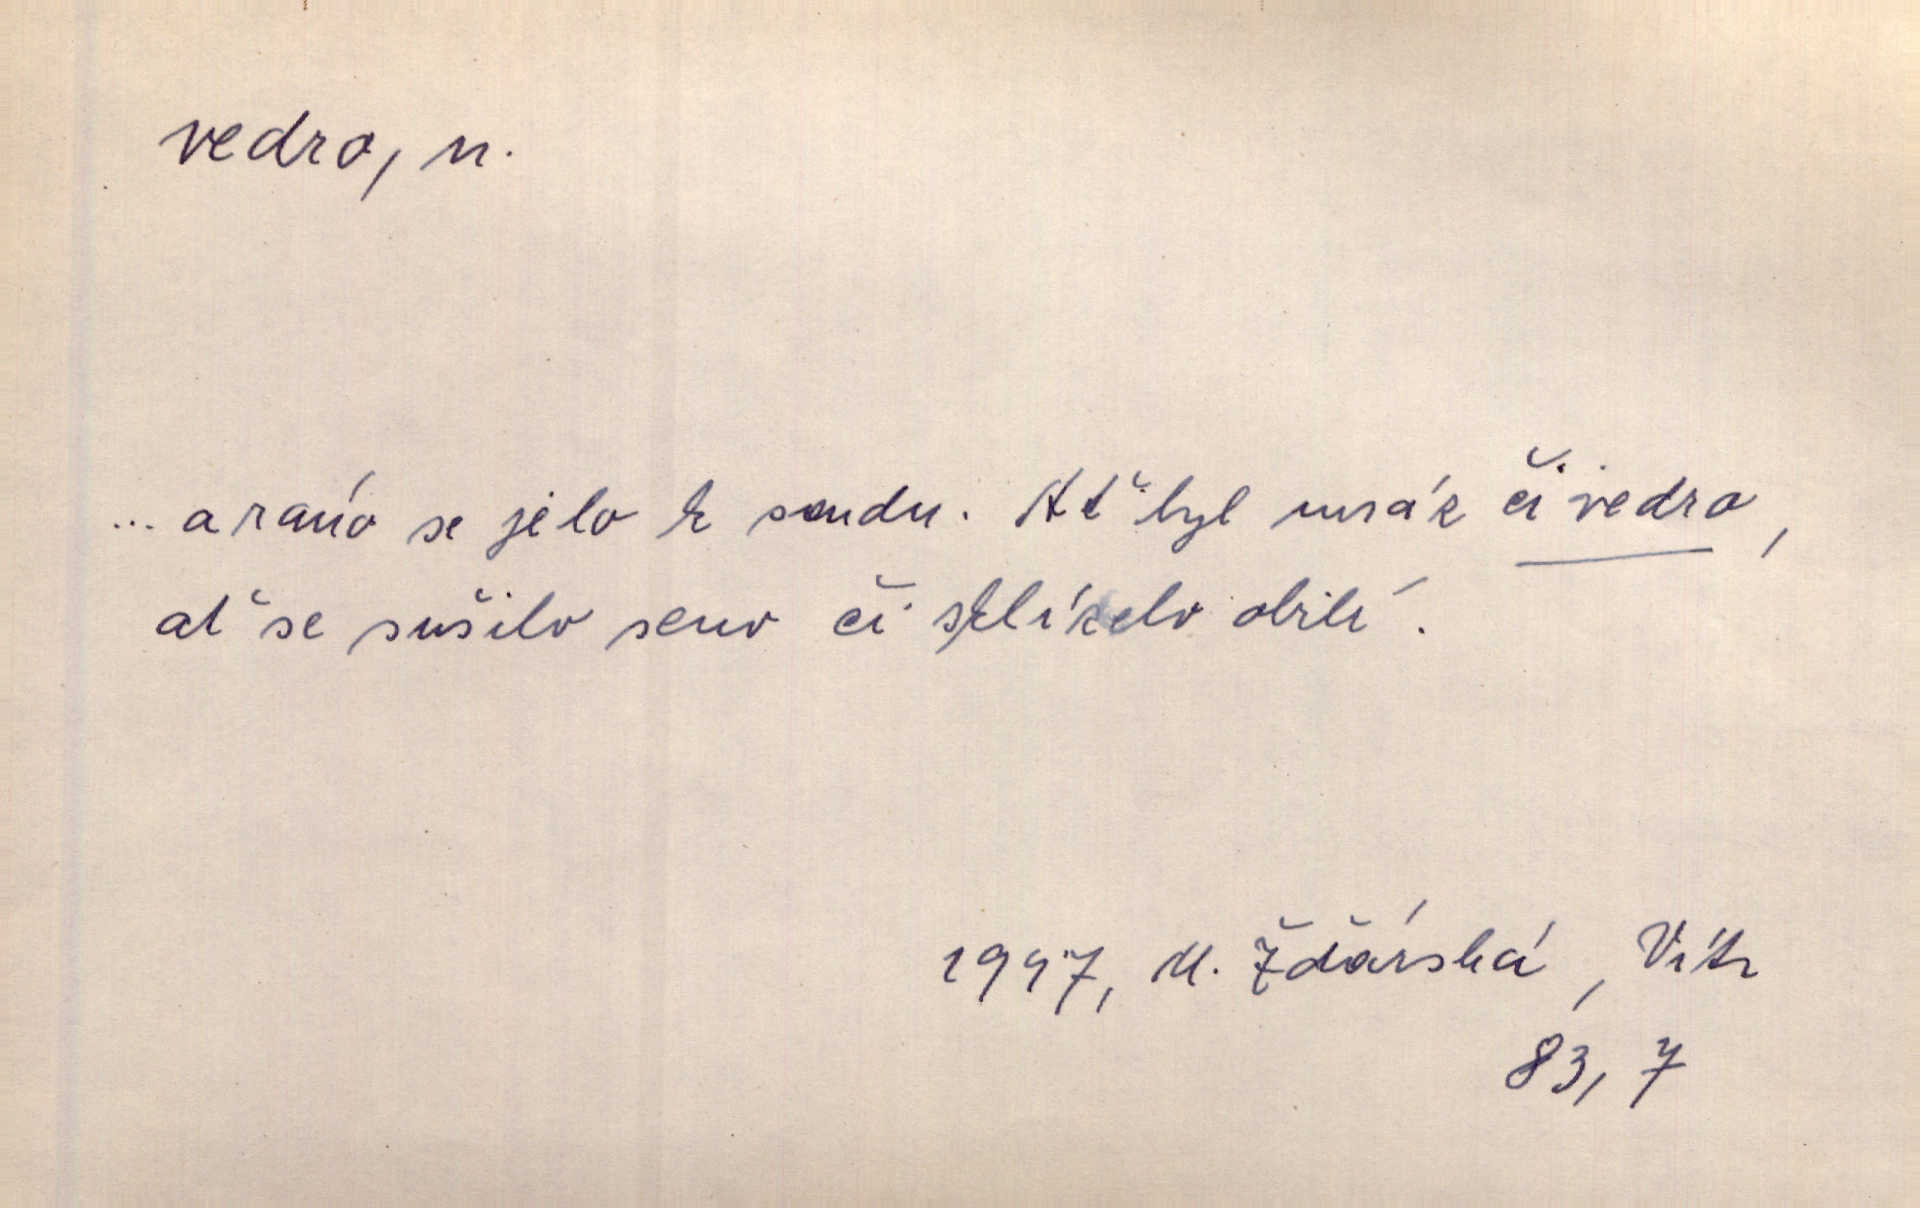 vedro, n.
... a ráno se jelo k soudu. Ať byl mráz či vedro,
ať se sušilo seno či sklízelo obilí.
1997, M. Žďárská, Vítr
83, 7